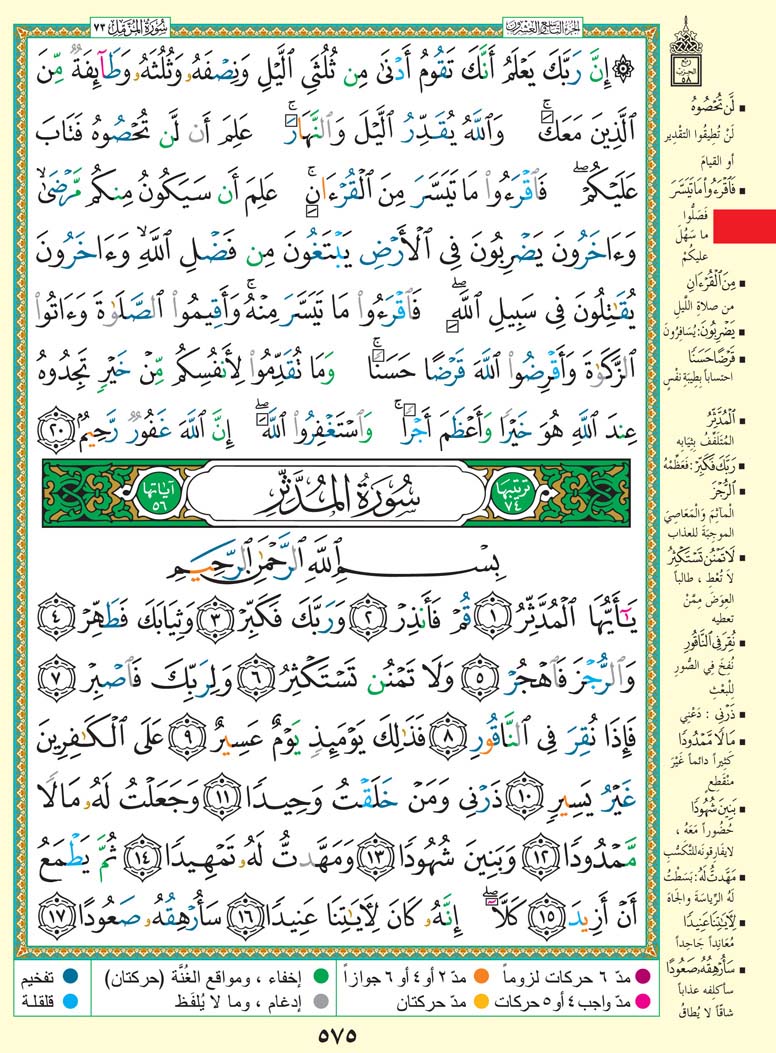 سُورَةُ المُزَّمِّل ٧٣
الجزء التاسع والعشرون
۞ إِنَّ رَبَّكَ يَعْلَمُ أَنَّكَ تَقُومُ أَدْنَىٰ مِن ثُلُثَيِ ٱلَّيْلِ وَنِصْفَهُۥ وَثُلُثَهُۥ وَطَآئِفَةٌ مِّنَ
ٱلَّذِينَ مَعَكَ ۚ وَٱللَّهُ يُقَدِّرُ ٱلَّيْلَ وَٱلنَّهَارَ ۚ عَلِمَ أَن لَّن تُحْصُوهُ فَتَابَ
عَلَيْكُمْ ۖ فَٱقْرَءُوا۟ مَا تَيَسَّرَ مِنَ ٱلْقُرْءَانِ ۚ عَلِمَ أَن سَيَكُونُ مِنكُم مَّرْضَىٰ ۙ
وَءَاخَرُونَ يَضْرِبُونَ فِى ٱلْأَرْضِ يَبْتَغُونَ مِن فَضْلِ ٱللَّهِ ۙ وَءَاخَرُونَ
يُقَٰتِلُونَ فِى سَبِيلِ ٱللَّهِ ۖ فَٱقْرَءُوا۟ مَا تَيَسَّرَ مِنْهُ ۚ وَأَقِيمُوا۟ ٱلصَّلَوٰةَ وَءَاتُوا۟
ٱلزَّكَوٰةَ وَأَقْرِضُوا۟ ٱللَّهَ قَرْضًا حَسَنًا ۚ وَمَا تُقَدِّمُوا۟ لِأَنفُسِكُم مِّنْ خَيْرٍ تَجِدُوهُ
عِندَ ٱللَّهِ هُوَ خَيْرًا وَأَعْظَمَ أَجْرًا ۚ وَٱسْتَغْفِرُوا۟ ٱللَّهَ ۖ إِنَّ ٱللَّهَ غَفُورٌ رَّحِيمٌ ٢٠
ترتيبها ٧٤ سُورَةُ المُدَّثِّرِ آياتها ٥٦
بِسْمِ ٱللَّهِ ٱلرَّحْمَٰنِ ٱلرَّحِيمِ
يَٰٓأَيُّهَا ٱلْمُدَّثِّرُ ١ قُمْ فَأَنذِرْ ٢ وَرَبَّكَ فَكَبِّرْ ٣ وَثِيَابَكَ فَطَهِّرْ ٤
وَٱلرُّجْزَ فَٱهْجُرْ ٥ وَلَا تَمْنُن تَسْتَكْثِرُ ٦ وَلِرَبِّكَ فَٱصْبِرْ ٧
فَإِذَا نُقِرَ فِى ٱلنَّاقُورِ ٨ فَذَٰلِكَ يَوْمَئِذٍ يَوْمٌ عَسِيرٌ ٩ عَلَى ٱلْكَٰفِرِينَ
غَيْرُ يَسِيرٍ ١٠ ذَرْنِى وَمَنْ خَلَقْتُ وَحِيدًا ١١ وَجَعَلْتُ لَهُۥ مَالًا
مَّمْدُودًا ١٢ وَبَنِينَ شُهُودًا ١٣ وَمَهَّدتُّ لَهُۥ تَمْهِيدًا ١٤ ثُمَّ يَطْمَعُ
أَنْ أَزِيدَ ١٥ كَلَّآ ۖ إِنَّهُۥ كَانَ لِءَايَٰتِنَا عَنِيدًا ١٦ سَأُرْهِقُهُۥ صَعُودًا ١٧
ربع
الحزب
٥٨
▪ لَّن تُحْصُوهُ
لَنْ تُطِيقُوا التقْدِير
أو القيامَ
▪ فَٱقْرَءُوا۟ مَا تَيَسَّرَ
فَصَلُّوا
ما سَهُلَ
عليكُمْ
▪ مِنَ ٱلْقُرْءَانِ
من صلاةِ اللَّيلِ
▪ يَضْرِبُونَ: يُسَافِرُونَ
▪ قَرْضًا حَسَنًا
احتساباً بطِيبَةِ نفْسٍ
▪ ٱلْمُدَّثِّرُ
المُتَلَفِّفُ بِثِيَابِه
▪ رَبَّكَ فَكَبِّرْ: فَعَظِّمْهُ
▪ ٱلرُّجْزَ
المآثِمَ وَالْمَعَاصِيَ
الموجِبَةَ للعذابِ
▪ لَا تَمْنُن تَسْتَكْثِرُ
لا تُعْطِ ، طالباً
العِوَضَ مِمَّنْ
تعطيه
▪ نُقِرَ فِى ٱلنَّاقُورِ
نُفِخَ فِي الصُّورِ
لِلْبَعْثِ
▪ ذَرْنِى : دَعْنِي
▪ مَالًا مَّمْدُودًا
كَثِيراً دائماً غَيْرَ
منْقَطِعٍ
▪ بَنِينَ شُهُودًا
حُضُوراً مَعَهُ ،
لا يفارِقونَه للتكسُّبِ
▪ مَهَّدتُّ لَهُ: بَسَطْتُ
لَهُ الرِّياسَةَ والجَاهَ
▪ لِءَايَٰتِنَا عَنِيدًا
مُعَانِداً جَاحِداً
▪ سَأُرْهِقُهُۥ صَعُودًا
سأكلفه عذاباً
شاقاً لا يُطاقُ
مدّ ٦ حركات لزوماً مدّ ٢ أو ٤ أو ٦ جوازاً إخفاء ، ومواقع الغُنَّة (حركتان) تفخيم
مدّ واجب ٤ أو ٥ حركات مدّ حركتان إدغام ، وما لا يُلفَظ قلقلة
٥٧٥